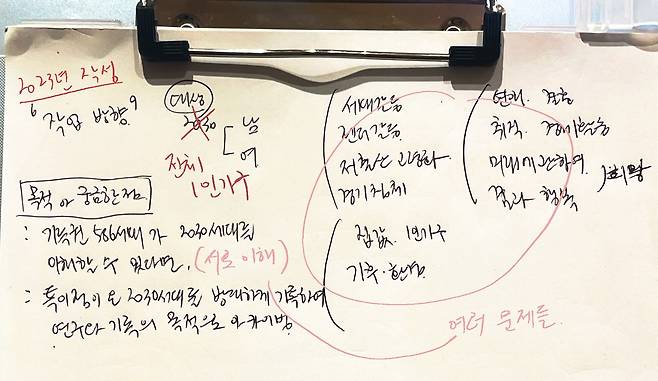 2023년 작성
작업 방향
대상
2030
남
여
전체
1인가구
목적 or 궁금한점
: 기득권 586세대가 2030세대를
이해할 수 있다면, (서로 이해)
: 특이점이 온 2030세대를 방대하게 기록하여
연구나 기록의 목적으로 아카이빙
세대갈등
젠더갈등
저출산 고령화
경기침체
집값 1인가구
기후·환경
연애 결혼
취직
미래
결과 행복
여러 문제들